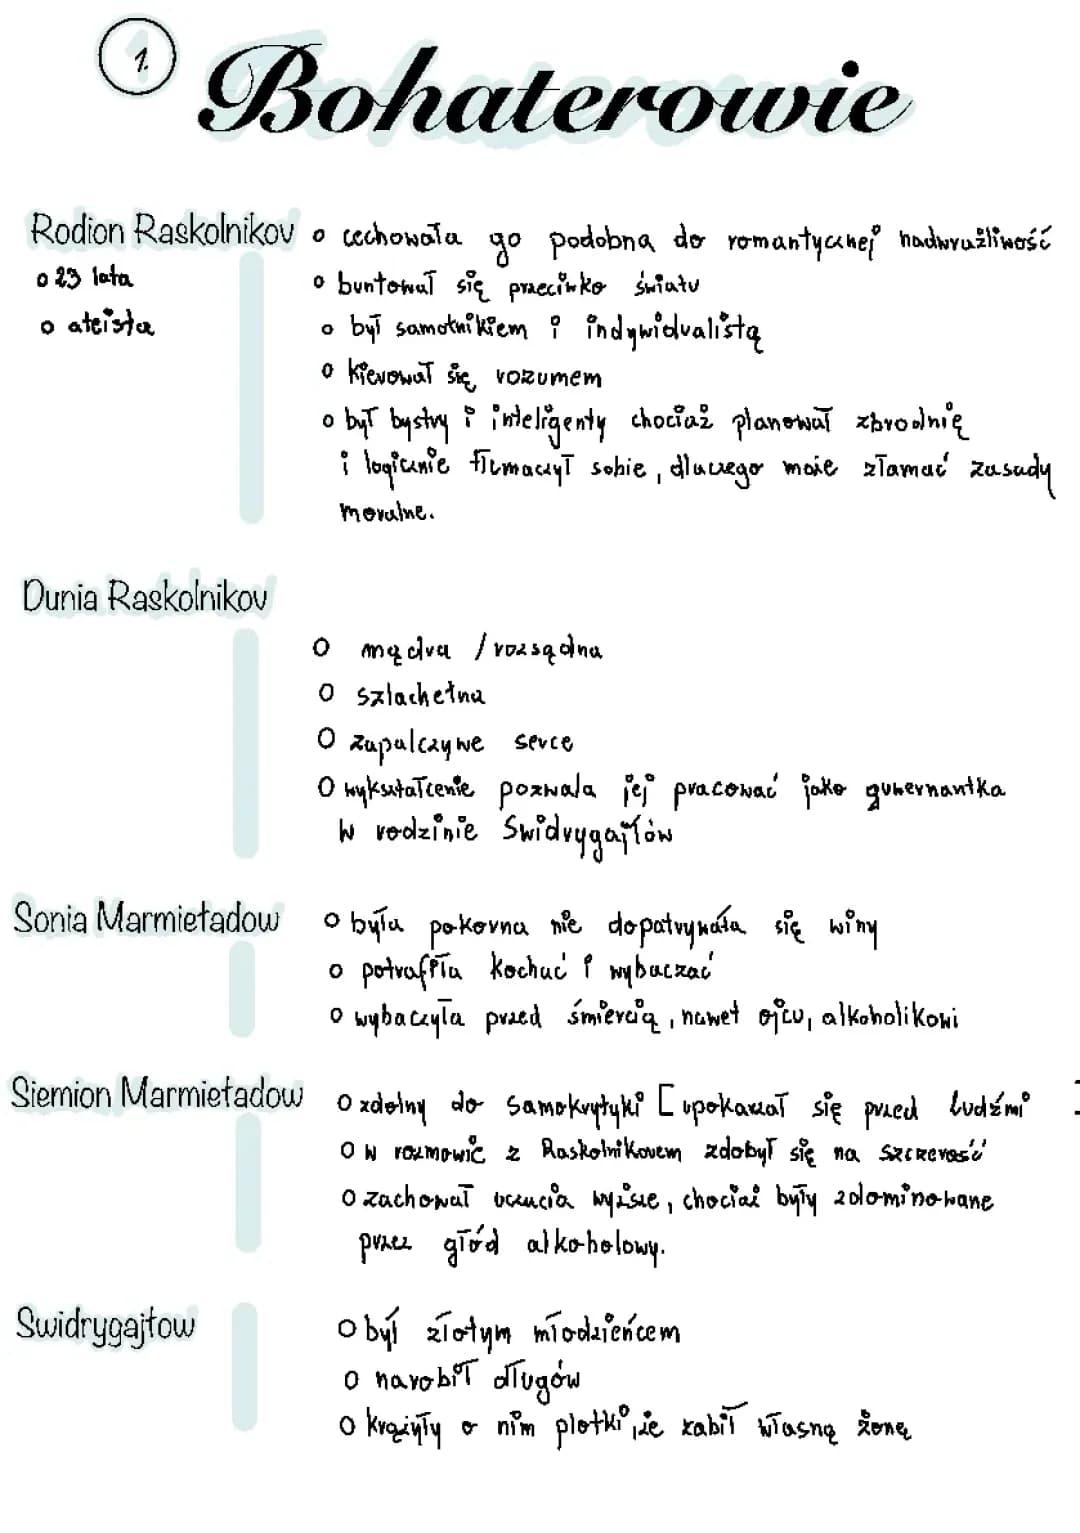 1.
Bohaterowie
Rodion Raskolnikov
o 23 lata
o ateista
o cechowała go podobna do romantycznej nadwrażliwość
o buntował się przeciwko światu
o był samotnikiem i indywidualistą
o kierował się rozumem
o był bystry i inteligenty chociaż planował zbrodnię
i logicznie tłumaczył sobie, dlaczego może złamać zasady
moralne.
Dunia Raskolnikov
o mądra / rozsądna
o szlachetna
o zapalczywe serce
o wykształcenie pozwala jej pracować jako guwernantka
w rodzinie Swidrygajłów
Sonia Marmieładow
o była pokorna nie dopatrywała się winy
o potrafiła kochać i wybaczać
o wybaczyła przed śmiercią, nawet ojcu, alkoholikowi
Siemion Marmieładow
o zdolny do samokrytyki [upokarzał się przed ludźmi ]
o w rozmowie z Raskolnikovem zdobył się na szczerość
o zachował uczucia wyższe, chociaż były zdominowane
przez głód alkoholowy.
Swidrygajłow
o był złotym młodzieńcem
o narobił długów
o krążyły o nim plotki, że zabił własną żonę